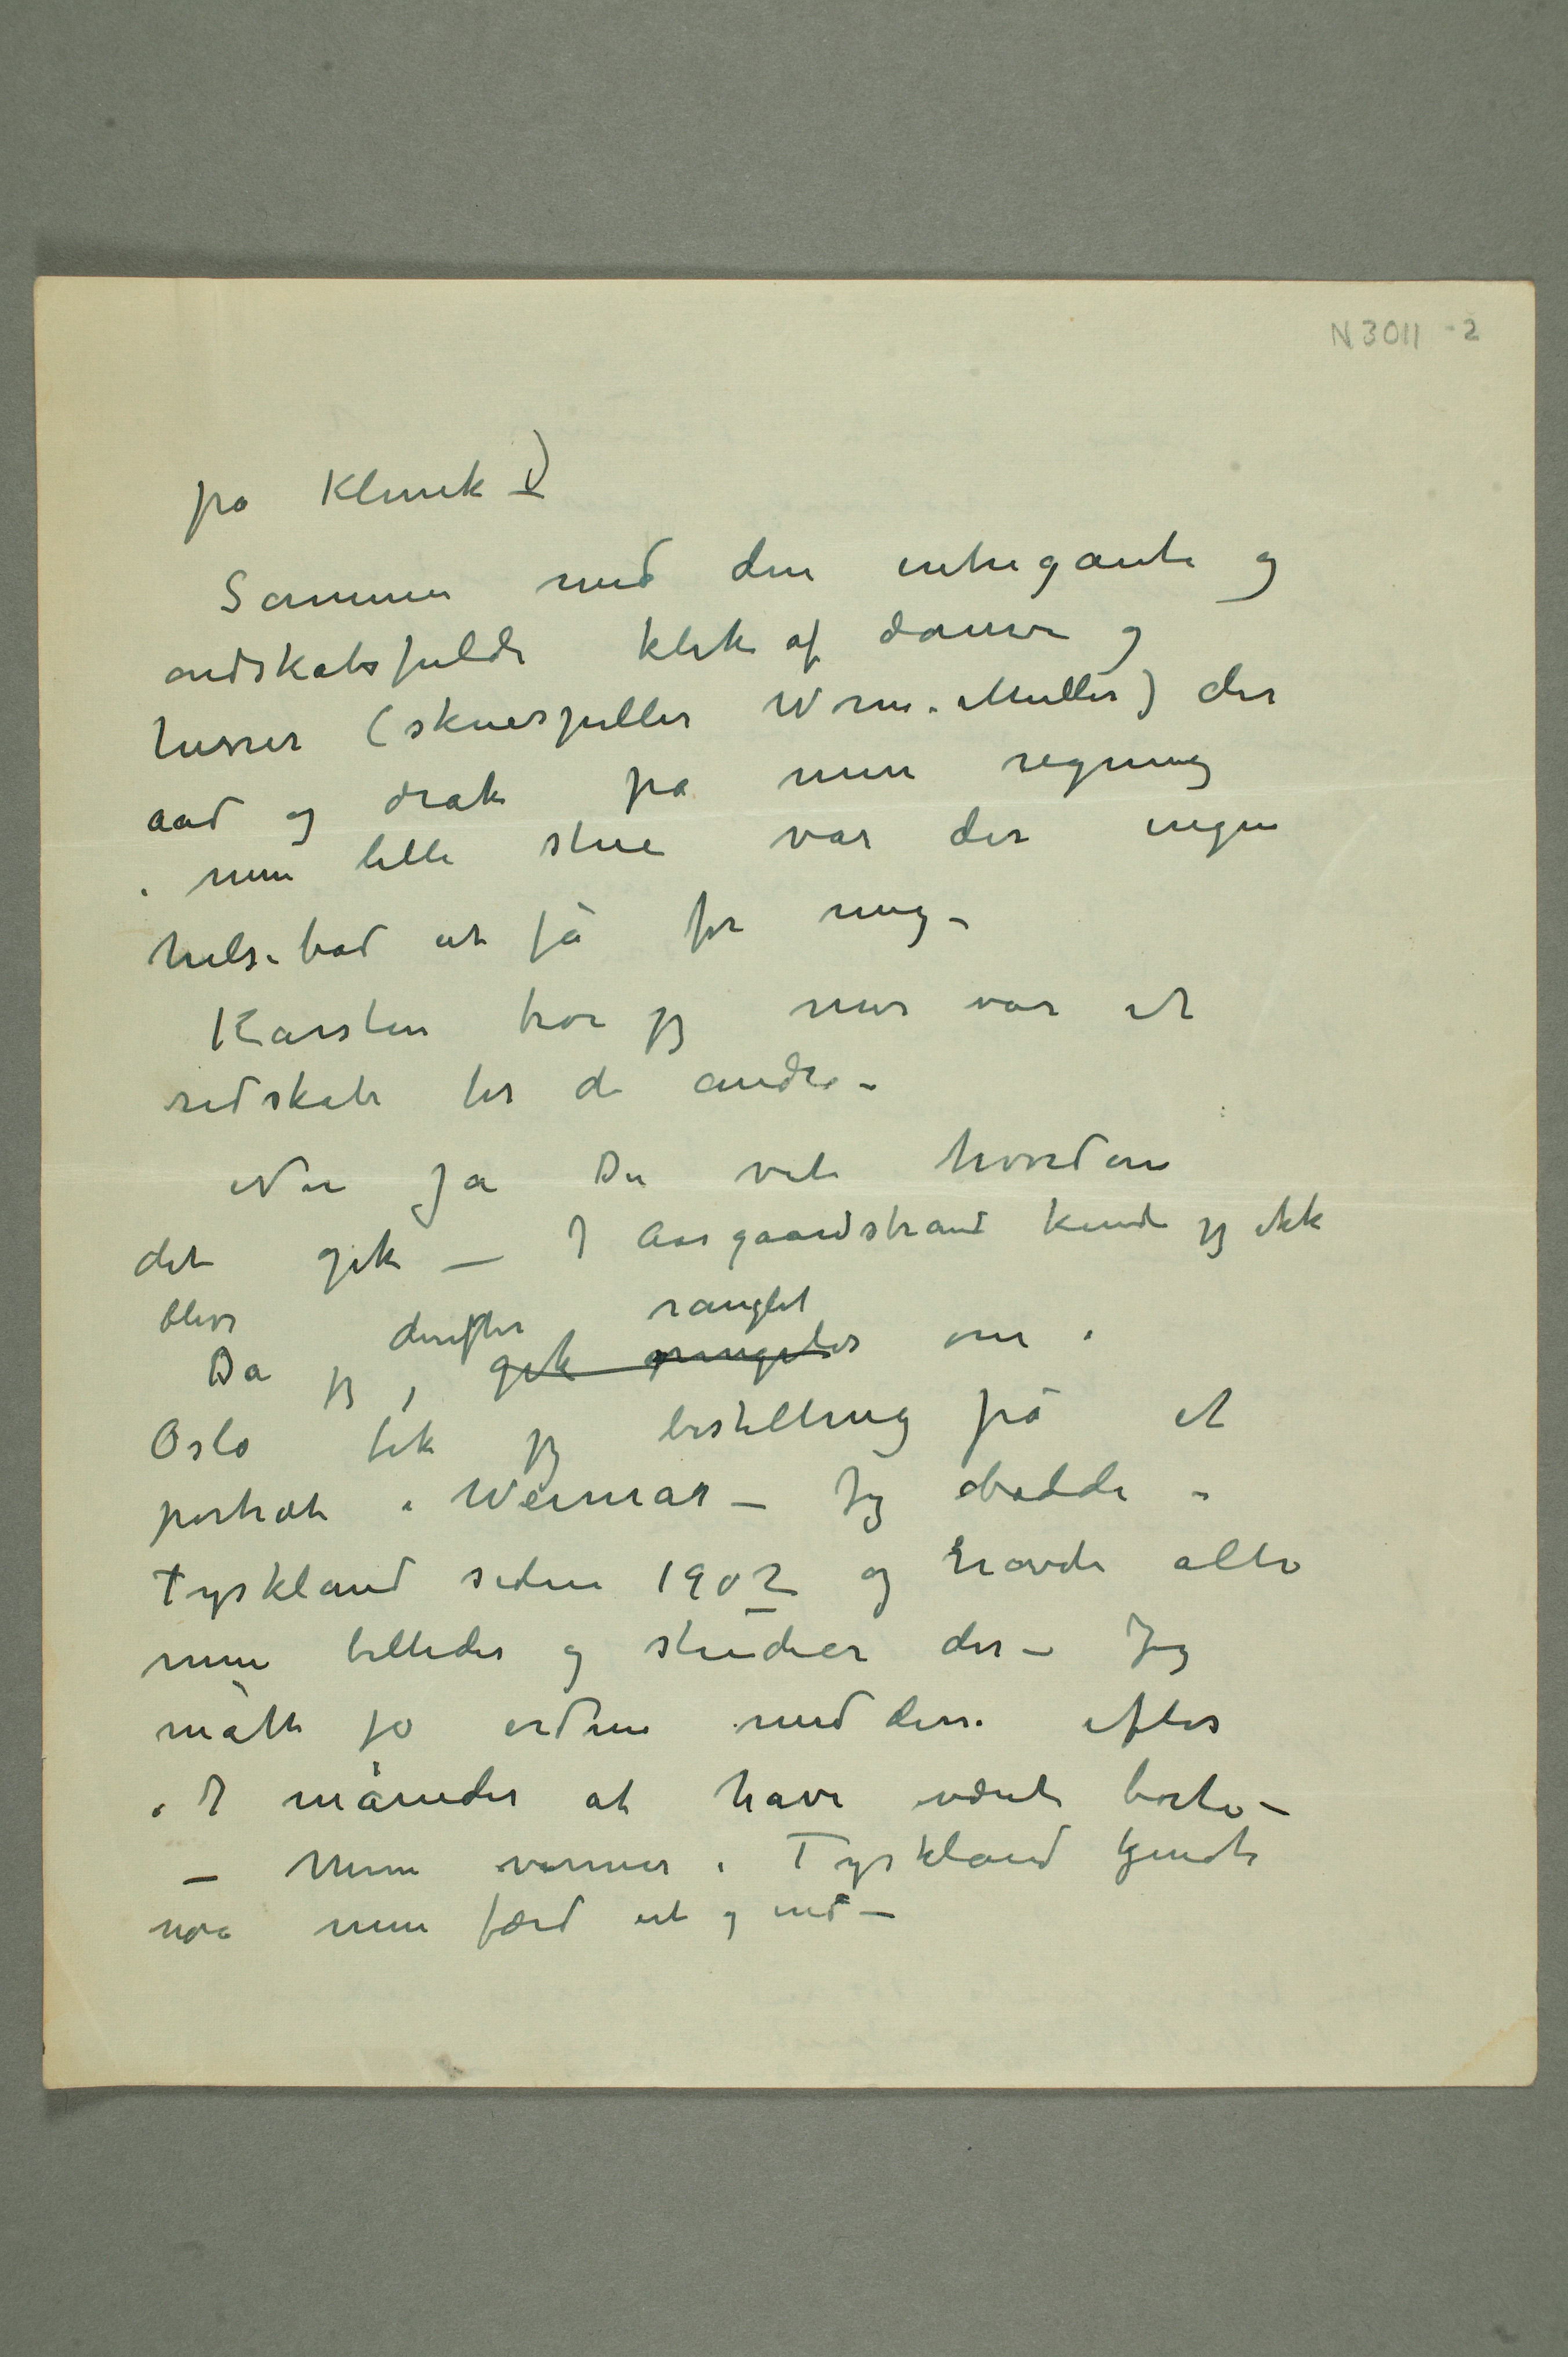 N 3011 -2
på Klinik –)
Sammen med den intrigante og
ondskabsfulde klike af damer og
herrer (skuespiller Worm-Müller) der
aad og drak på min regning
i min lille stue var der ingen
helsebod at få for meg –
Karsten tror jeg mer var et
redskab for de andre –
Nu Ja Du vet hvordan
det gik – I Aasgaardstrand kunde jeg ikke
blive
derefter ranglet
Da jeg, gik om i
Oslo fik jeg bestilling på et
portræt i Weimar – Jeg bodde i
Tyskland siden 1902 og havde alle
mine billeder og studier der – Jeg
måtte jo ordne med disse efter
i 7 måneder at have været borte –
– Mine venner i Tyskland kjendte
min færd ut og ind –